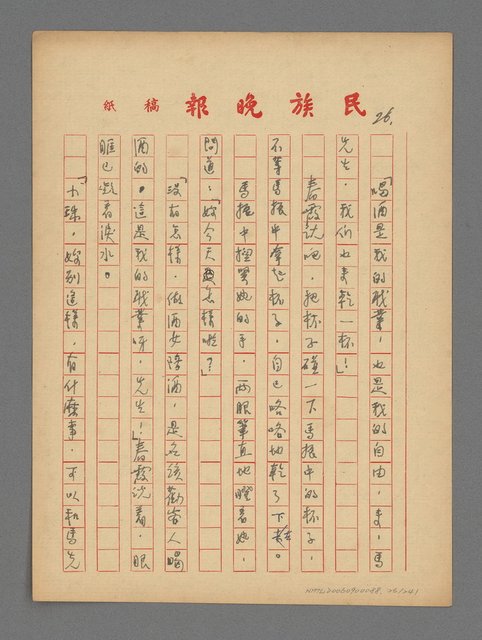 民族晚報 稿紙
26.
「喝酒是我的職業，也是我的自由，來，馬
先生，我们也来乾一杯！」
春霞說吧，把杯子碰一下馬振中的杯子，
不等馬振中拿起杯子，自己咯咯地乾了下去。
馬振中握緊她的手，两眼筆直地瞪着她，
問道：「妳今天怎樣啦？」
「没有怎樣，做酒女陪酒，是名該勸客人喝
酒的。這是我的職業呀，先生！」春霞說着，眼
眶已飽着淚水。
「小珠，妳别這樣，有什麼事，可以和馬先
NMTL20060900088. 26/241